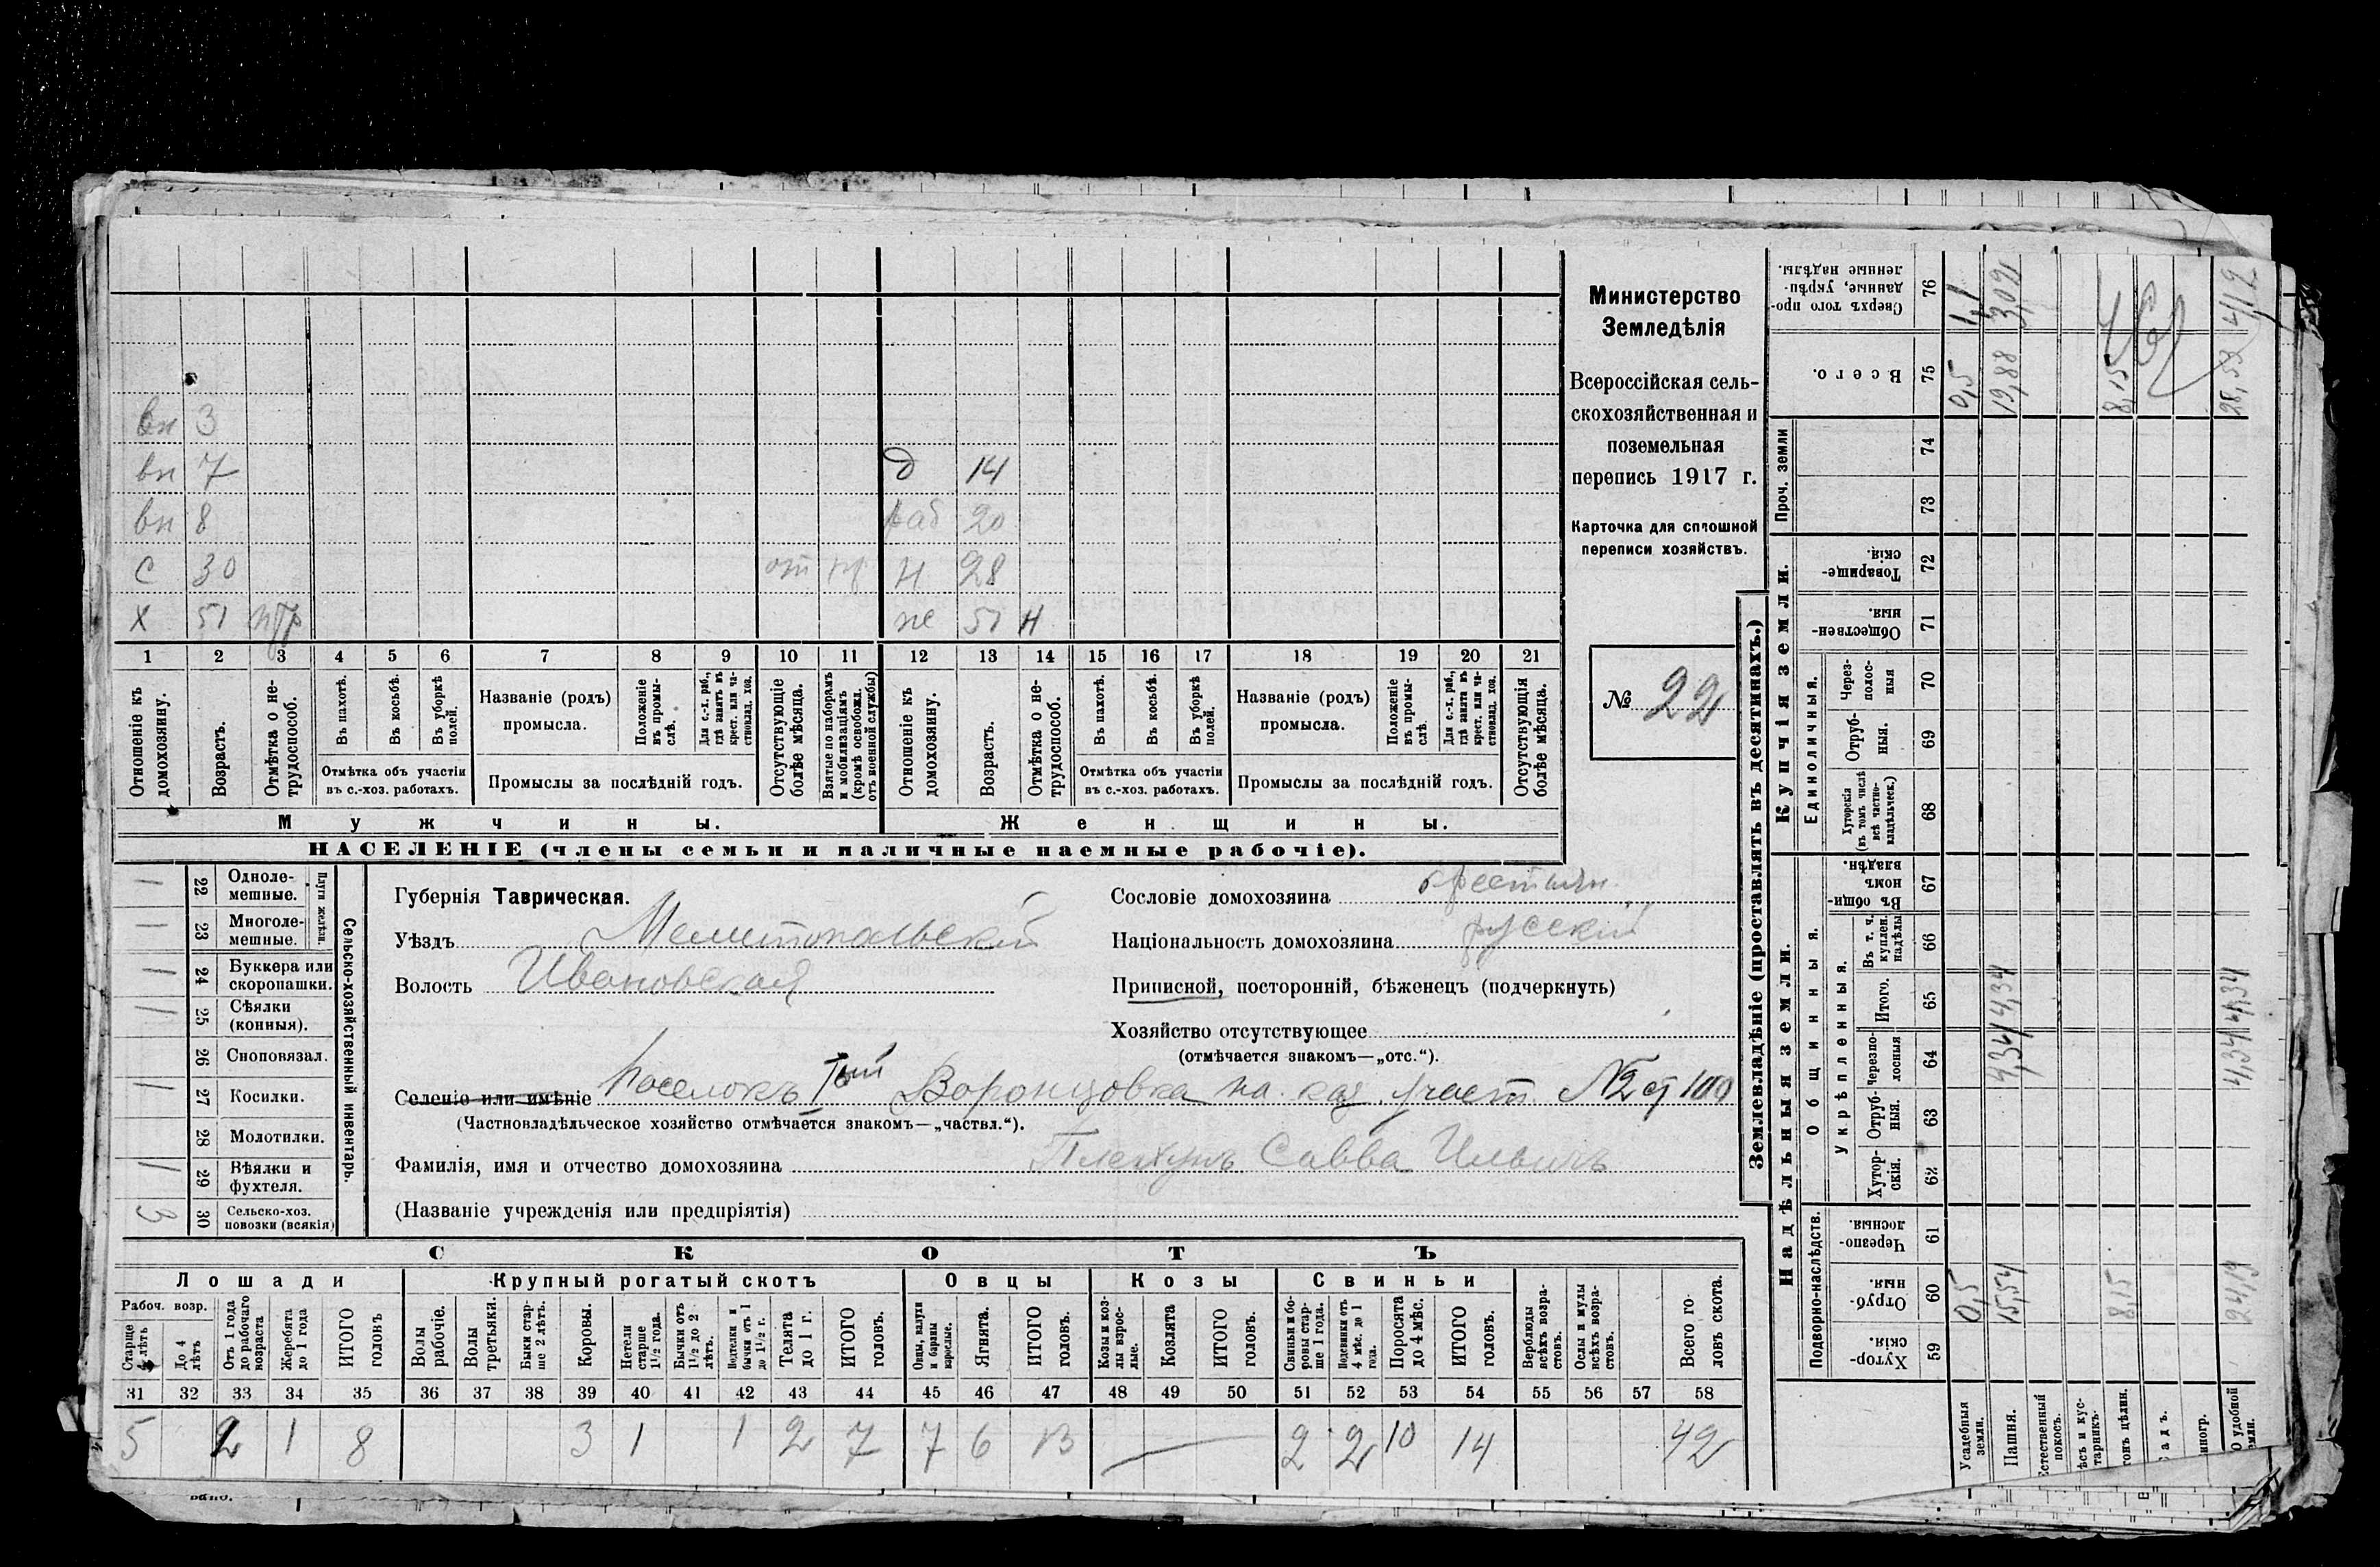 вн 3
вн 7 д 14
вн 8 раб 20
С 30 от Н 28
Х 51 нтр же 51 н
1 2 3 4 5 6 7 8 9 10 11 12 13 14 15 16 17 18 19 20 21
Отношеніе къ домохозяину.
Возрастъ.
Отмѣтка о не-трудоспособ.
Въ пахотѣ.
Въ косьбѣ.
Въ уборкѣ полей.
Отмѣтка объ участіи
въ с.-хоз. работахъ.
Названіе (родъ)
промысла.
Положеніе въ промы-слѣ.
Для с.-х. раб., гдѣ занятъ въ крест. или ча-стновлад. хоз.
Промыслы за послѣдній годъ.
Отсутствующіе болѣе мѣсяца.
Взятые по наборамъ и мобилизаціямъ (кромѣ освобожд. отъ военной службы)
Отношеніе къ домохозяину.
Возрастъ.
Отмѣтка о не-трудоспособ.
Въ пахотѣ.
Въ косьбѣ.
Въ уборкѣ полей.
Отмѣтка объ участіи
въ с.-хоз. работахъ.
Названіе (родъ)
промысла.
Положеніе въ промы-слѣ.
Для с.-х. раб., гдѣ занята въ крест. или ча-стновлад. хоз.
Промыслы за послѣдній годъ.
Отсутствующія болѣе мѣсяца.
Мужчины. Женщины.
НАСЕЛЕНІЕ (члены семьи и наличные наемные рабочіе).
Министерство
Земледѣлія
Всероссійская сель-
скохозяйственная и
поземельная
перепись 1917 г.
Карточка для сплошной
переписи хозяйствъ.
№ 22
Сельско-хозяйственный инвентарь.
Плуги желѣзн.
1 22 Однолемешные.
1 23 Многолемешные.
1 24 Буккера или скоропашки.
1 25 Сѣялки (конныя).
26 Сноповязал.
1 27 Косилки.
28 Молотилки.
1 29 Вѣялки и фухтеля.
3 30 Сельско-хоз. повозки (всякія)
Губернія Таврическая.
Уѣздъ Мелитопольскій
Волость Ивановская
Сословіе домохозяина крестьян.
Національность домохозяина русскій
Приписной, посторонній, бѣженецъ (подчеркнуть)
Хозяйство отсутствующее
(отмѣчается знакомъ—„отс.“).
Селеніе или имѣніе Поселокъ I-ый Воронцовка на каз. участ. №
(Частновладѣльческое хозяйство отмѣчается знакомъ—„частвл.“).
Фамилія, имя и отчество домохозяина Савва Ильичъ
(Названіе учрежденія или предпріятія)
СКОТЪ
Лошади Крупный рогатый скотъ Овцы Козы Свиньи
Рабоч. возр.
Старше 4 лѣтъ
До 4 лѣтъ
Отъ 1 года до рабочаго возраста
Жеребята до 1 года
ИТОГО головъ
Волы рабочіе.
Волы третьяки.
Быки стар-ше 2 лѣтъ.
Коровы.
Нетели старше 1½ года.
Бычки отъ 1½ до 2 лѣтъ.
Подтелки и бычки отъ 1 до 1½ г.
Телята до 1 г.
ИТОГО головъ.
Овцы, валухи и бараны взрослые.
Ягнята.
ИТОГО головъ.
Козы и коз-лы взрос-лые.
Козлята
ИТОГО головъ.
Свиньи и бо-ровы стар-ше 1 года.
Подсвинки отъ 4 мѣс. до 1 года.
Поросята до 4 мѣс.
ИТОГО головъ.
Верблюды всѣхъ возра-стовъ.
Ослы и мулы всѣхъ возра-стовъ.
Всего го-ловъ скота.
31 32 33 34 35 36 37 38 39 40 41 42 43 44 45 46 47 48 49 50 51 52 53 54 55 56 57 58
5 2 1 8 3 1 1 2 7 7 6 13 — 2 2 10 14 42
Землевладѣніе (проставлять въ десятинахъ.)
Надѣльныя земли.
Купчія земли.
Проч. земли
Подворно-наслѣдств.
Общинныя.
Укрѣпленныя.
Единоличныя.
59 Хутор-скія.
60 Отруб-ныя.
61 Черезпо-лосныя
62 Хутор-скія.
63 Отруб-ныя.
64 Черезпо-лосныя
65 Итого.
66 Въ т. ч. куплен. надѣлы
67 Въ общин-номъ владѣн.
68 Хуторскія (въ томъ числѣ всѣ частно-владѣльческ.)
69 Отруб-ныя.
70 Через-полос-ныя
71 Обществен-ныя.
72 Товарище-скія.
73
74
75 Всего.
76 Сверхъ того про-данные, укрѣп-ленные надѣлы.
Усадебныя земли. 0,5 0,5 1,1
Пашня. 15,54 4,34 4,34 19,88
Естественный покосъ.
8,15 8,15
24,19 4,34 4,34